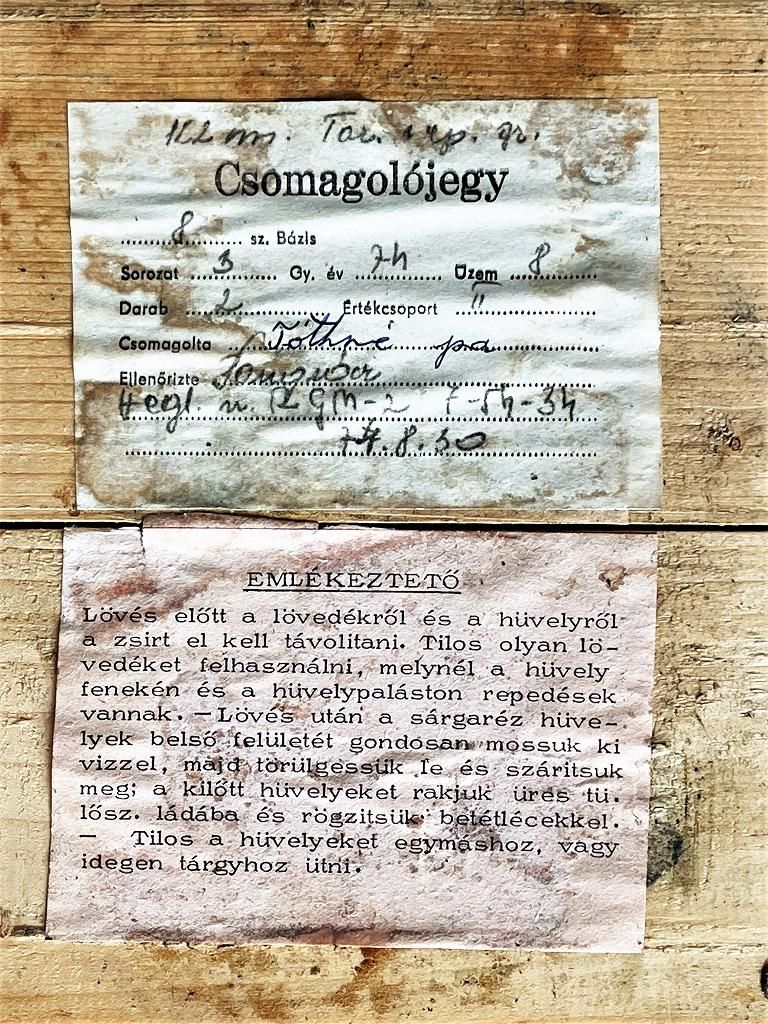 122 m. Tar. rep. gr.
Csomagolójegy
8 sz. Bázis
Sorozat 3 Gy. év 74 Üzem 8
Darab 2 Értékcsoport II
Csomagolta Tóthné
Ellenőrizte
RGM-2 7-54-34
74.8.30
EMLÉKEZTETŐ
Lövés előtt a lövedékről és a hüvelyről
a zsirt el kell távolitani. Tilos olyan lö-
vedéket felhasználni, melynél a hüvely
fenekén és a hüvelypaláston repedések
vannak. — Lövés után a sárgaréz hüve-
lyek belső felületét gondosan mossuk ki
vizzel, majd törülgessük le és száritsuk
meg; a kilőtt hüvelyeket rakjuk üres tü.
lősz. ládába és rögzitsük betétlécekkel.
— Tilos a hüvelyeket egymáshoz, vagy
idegen tárgyhoz ütni.